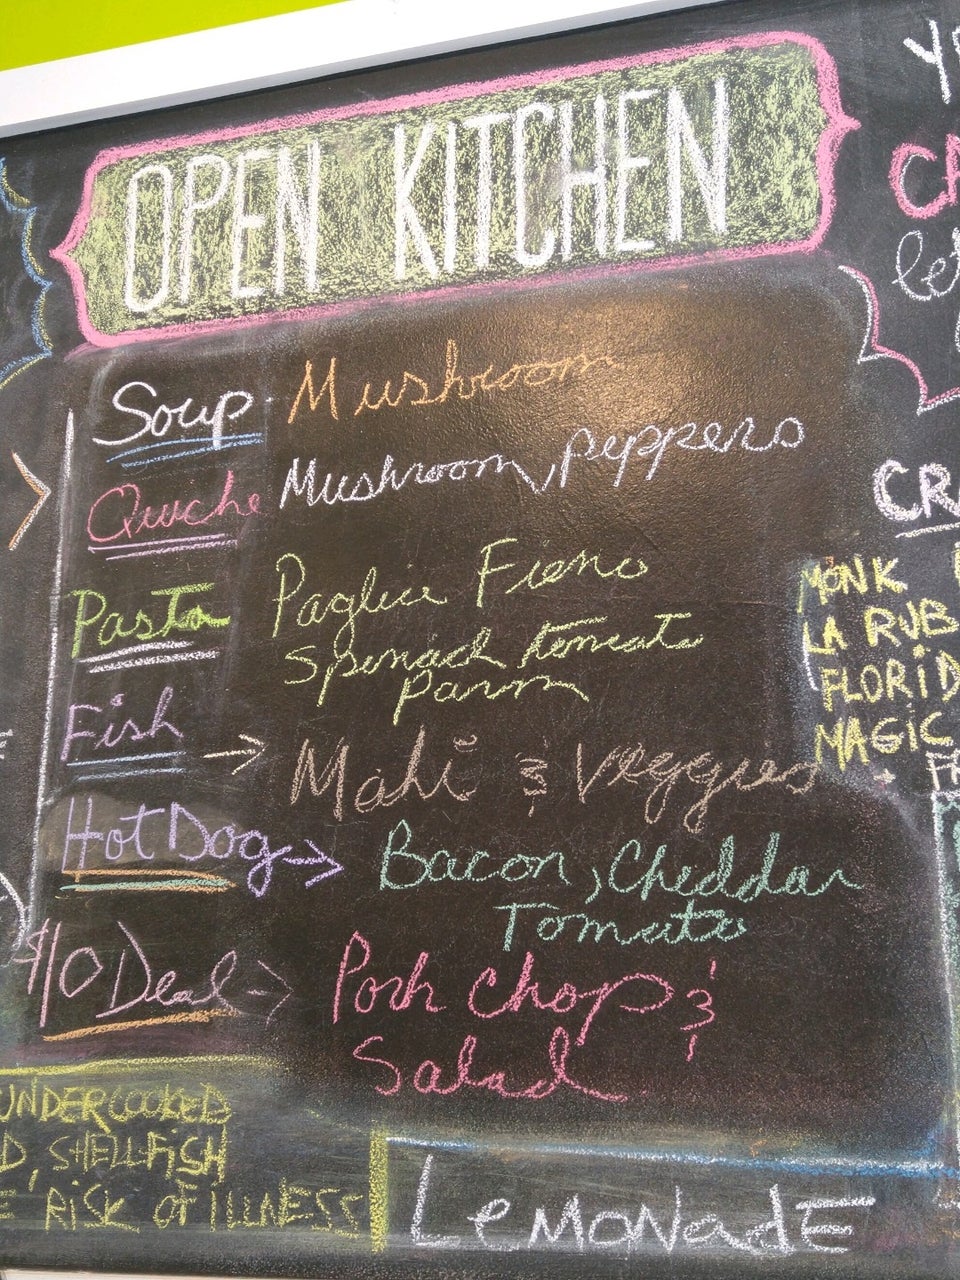 OPEN KITCHEN
Soup Mushroom
Quiche Mushroom, peppers
Pasta Paglia Fieno
Spinach tomato
parm
Fish → Mahi & Veggies
Hot Dog → Bacon, Cheddar
Tomato
$10 Deal → Pork Chop &
Salad
UNDERCOOKED
D, SHELLFISH
E RISK OF ILLNESS
LEMONADE
CR
MONK
LA RUB
FLORID
MAGIC